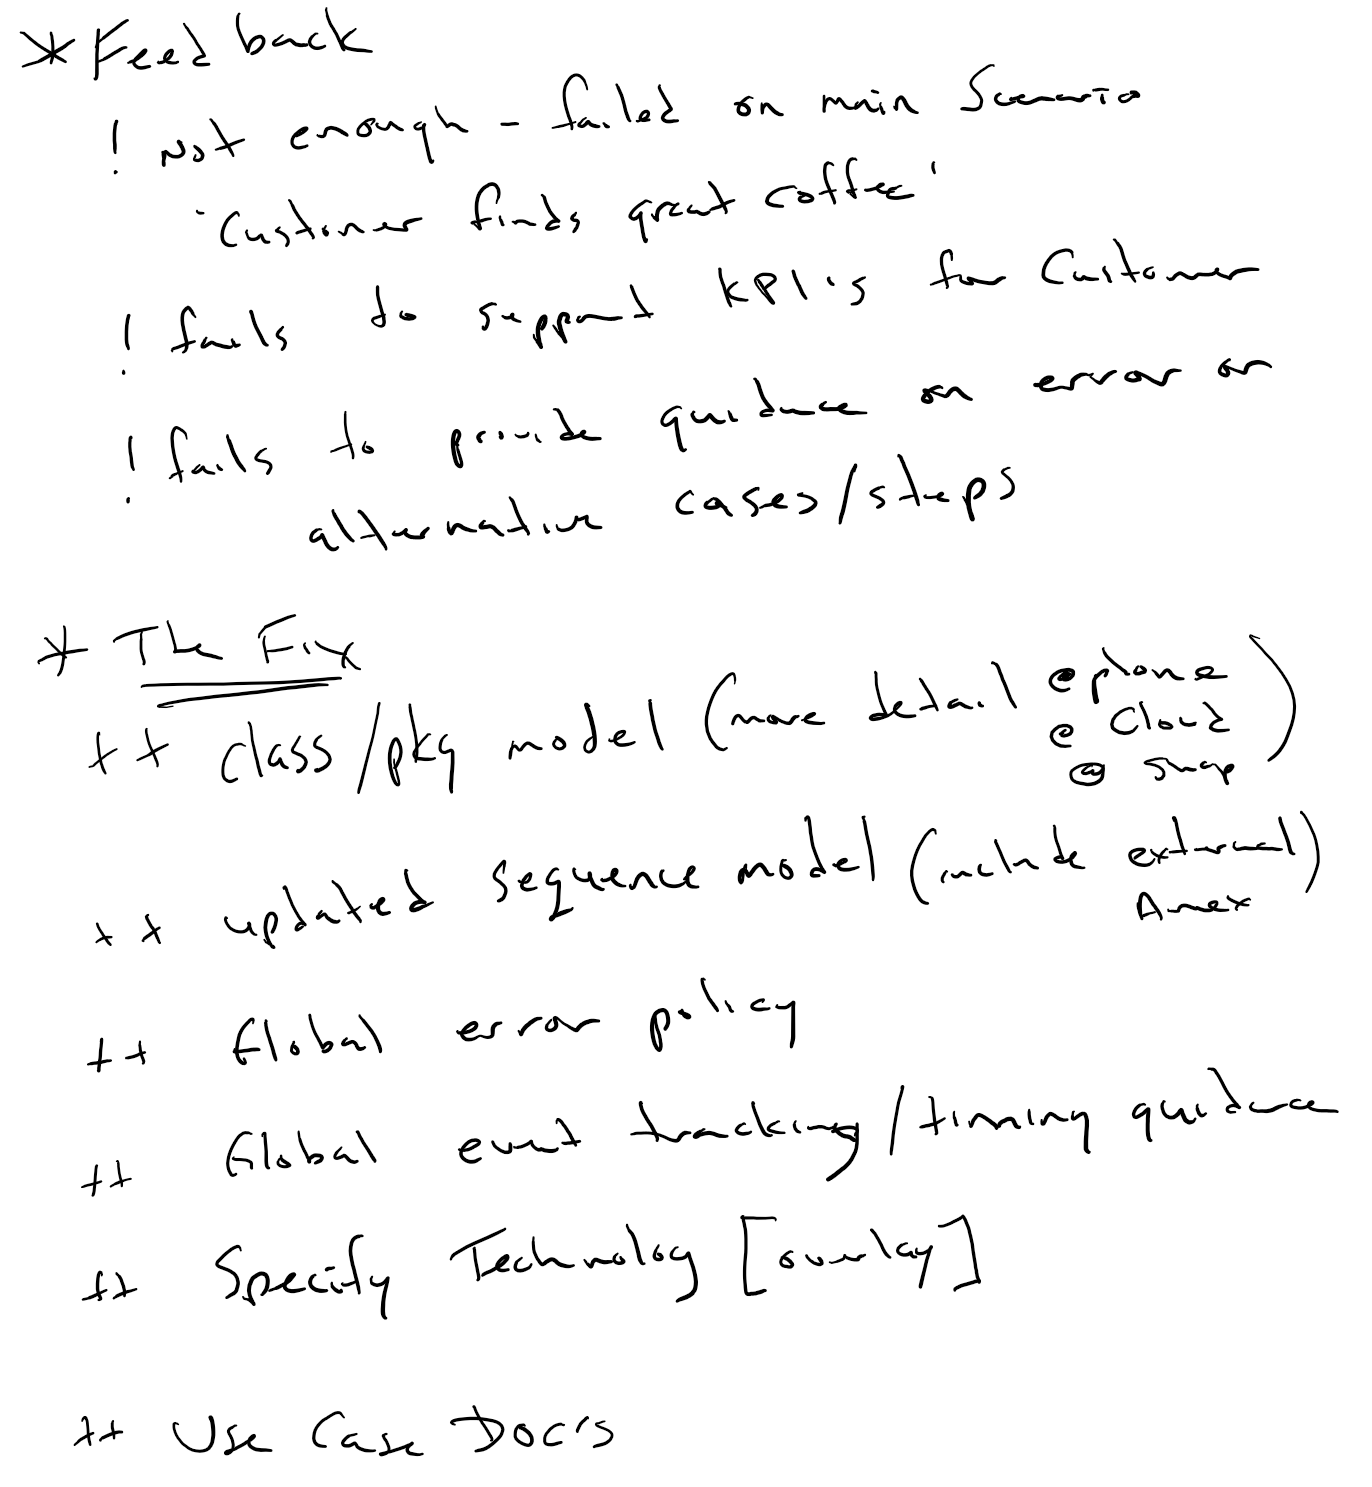 * Feedback
! Not enough - failed on main Scenario
'Customer finds great coffee'
! fails to support KPI's for Customer
! fails to provide guidance on error or
alternative cases/steps
* The Fix
++ class/pkg model (more detail @phone
@ Cloud
@ shop)
++ updated sequence model (include external)
Amex
++ Global error policy
++ Global event tracking/timing guidance
++ Specify Technology [overlay]
++ Use Case Doc's